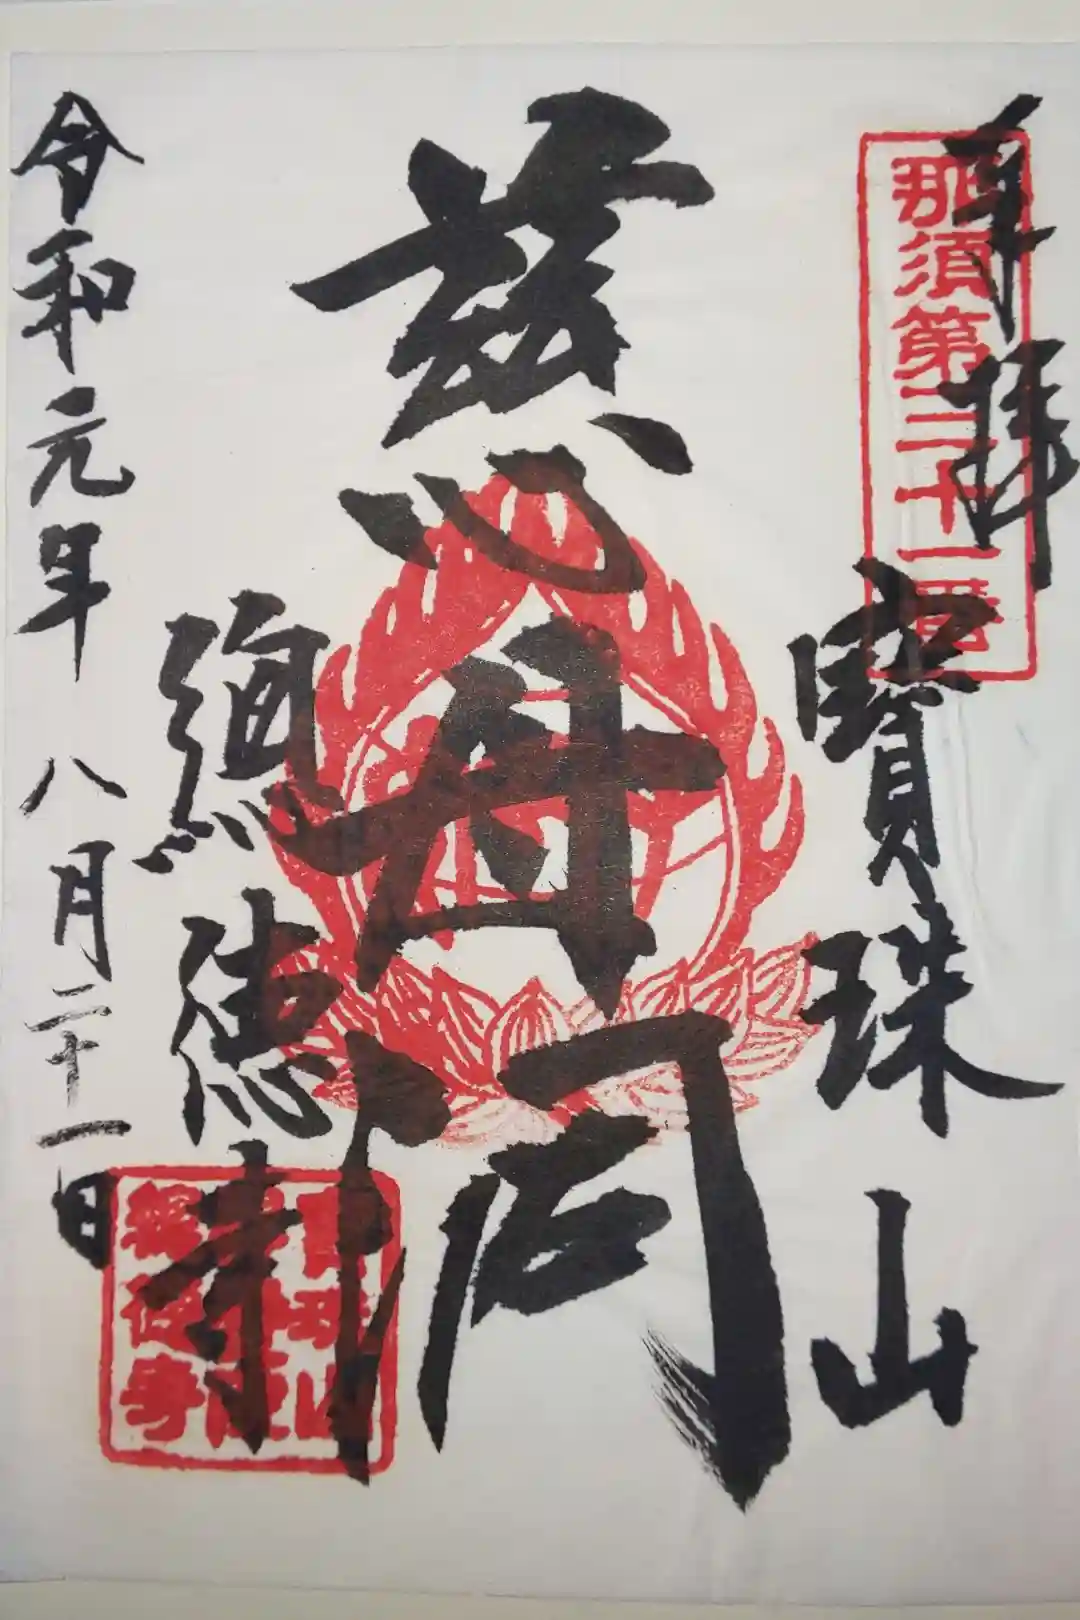 奉拝
那須第三十一番
寶珠山
慈
總徳寺
令和元年八月二十一日
總徳寺